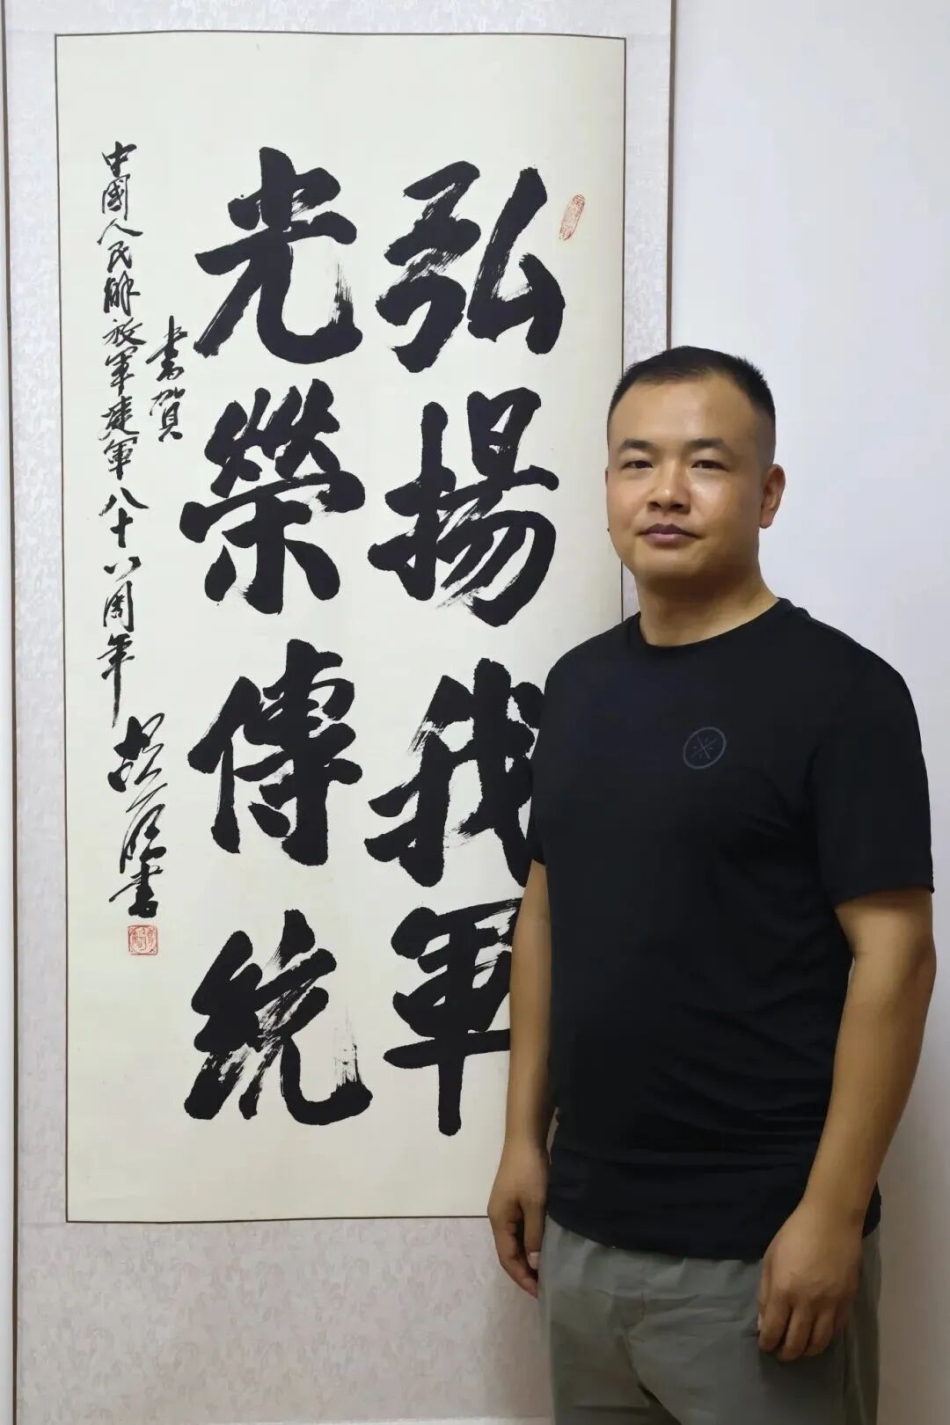 弘揚我軍
光榮傳統
書賀
中國人民解放軍建軍八十八周年
書